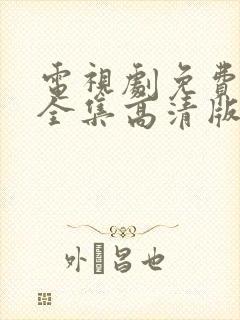 電視劇免費
全集高清版
外�昌也